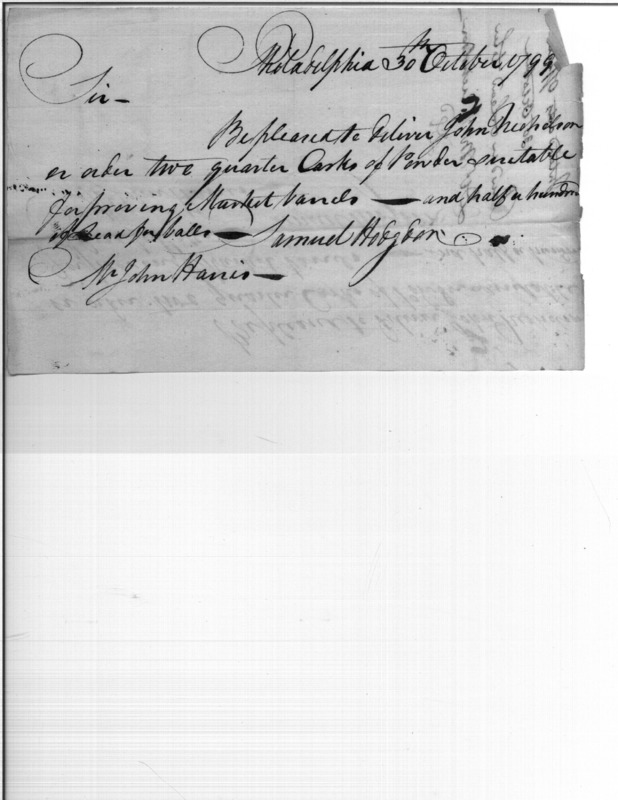 Philadelphia 30th October 1799
Sir —
Be pleased to deliver John Nicholson
or order two quarter Casks of Powder suitable
for proving Musket barrels — and half a hundred
of Lead for balls — Samuel Hodgdon
Mr John Harris —